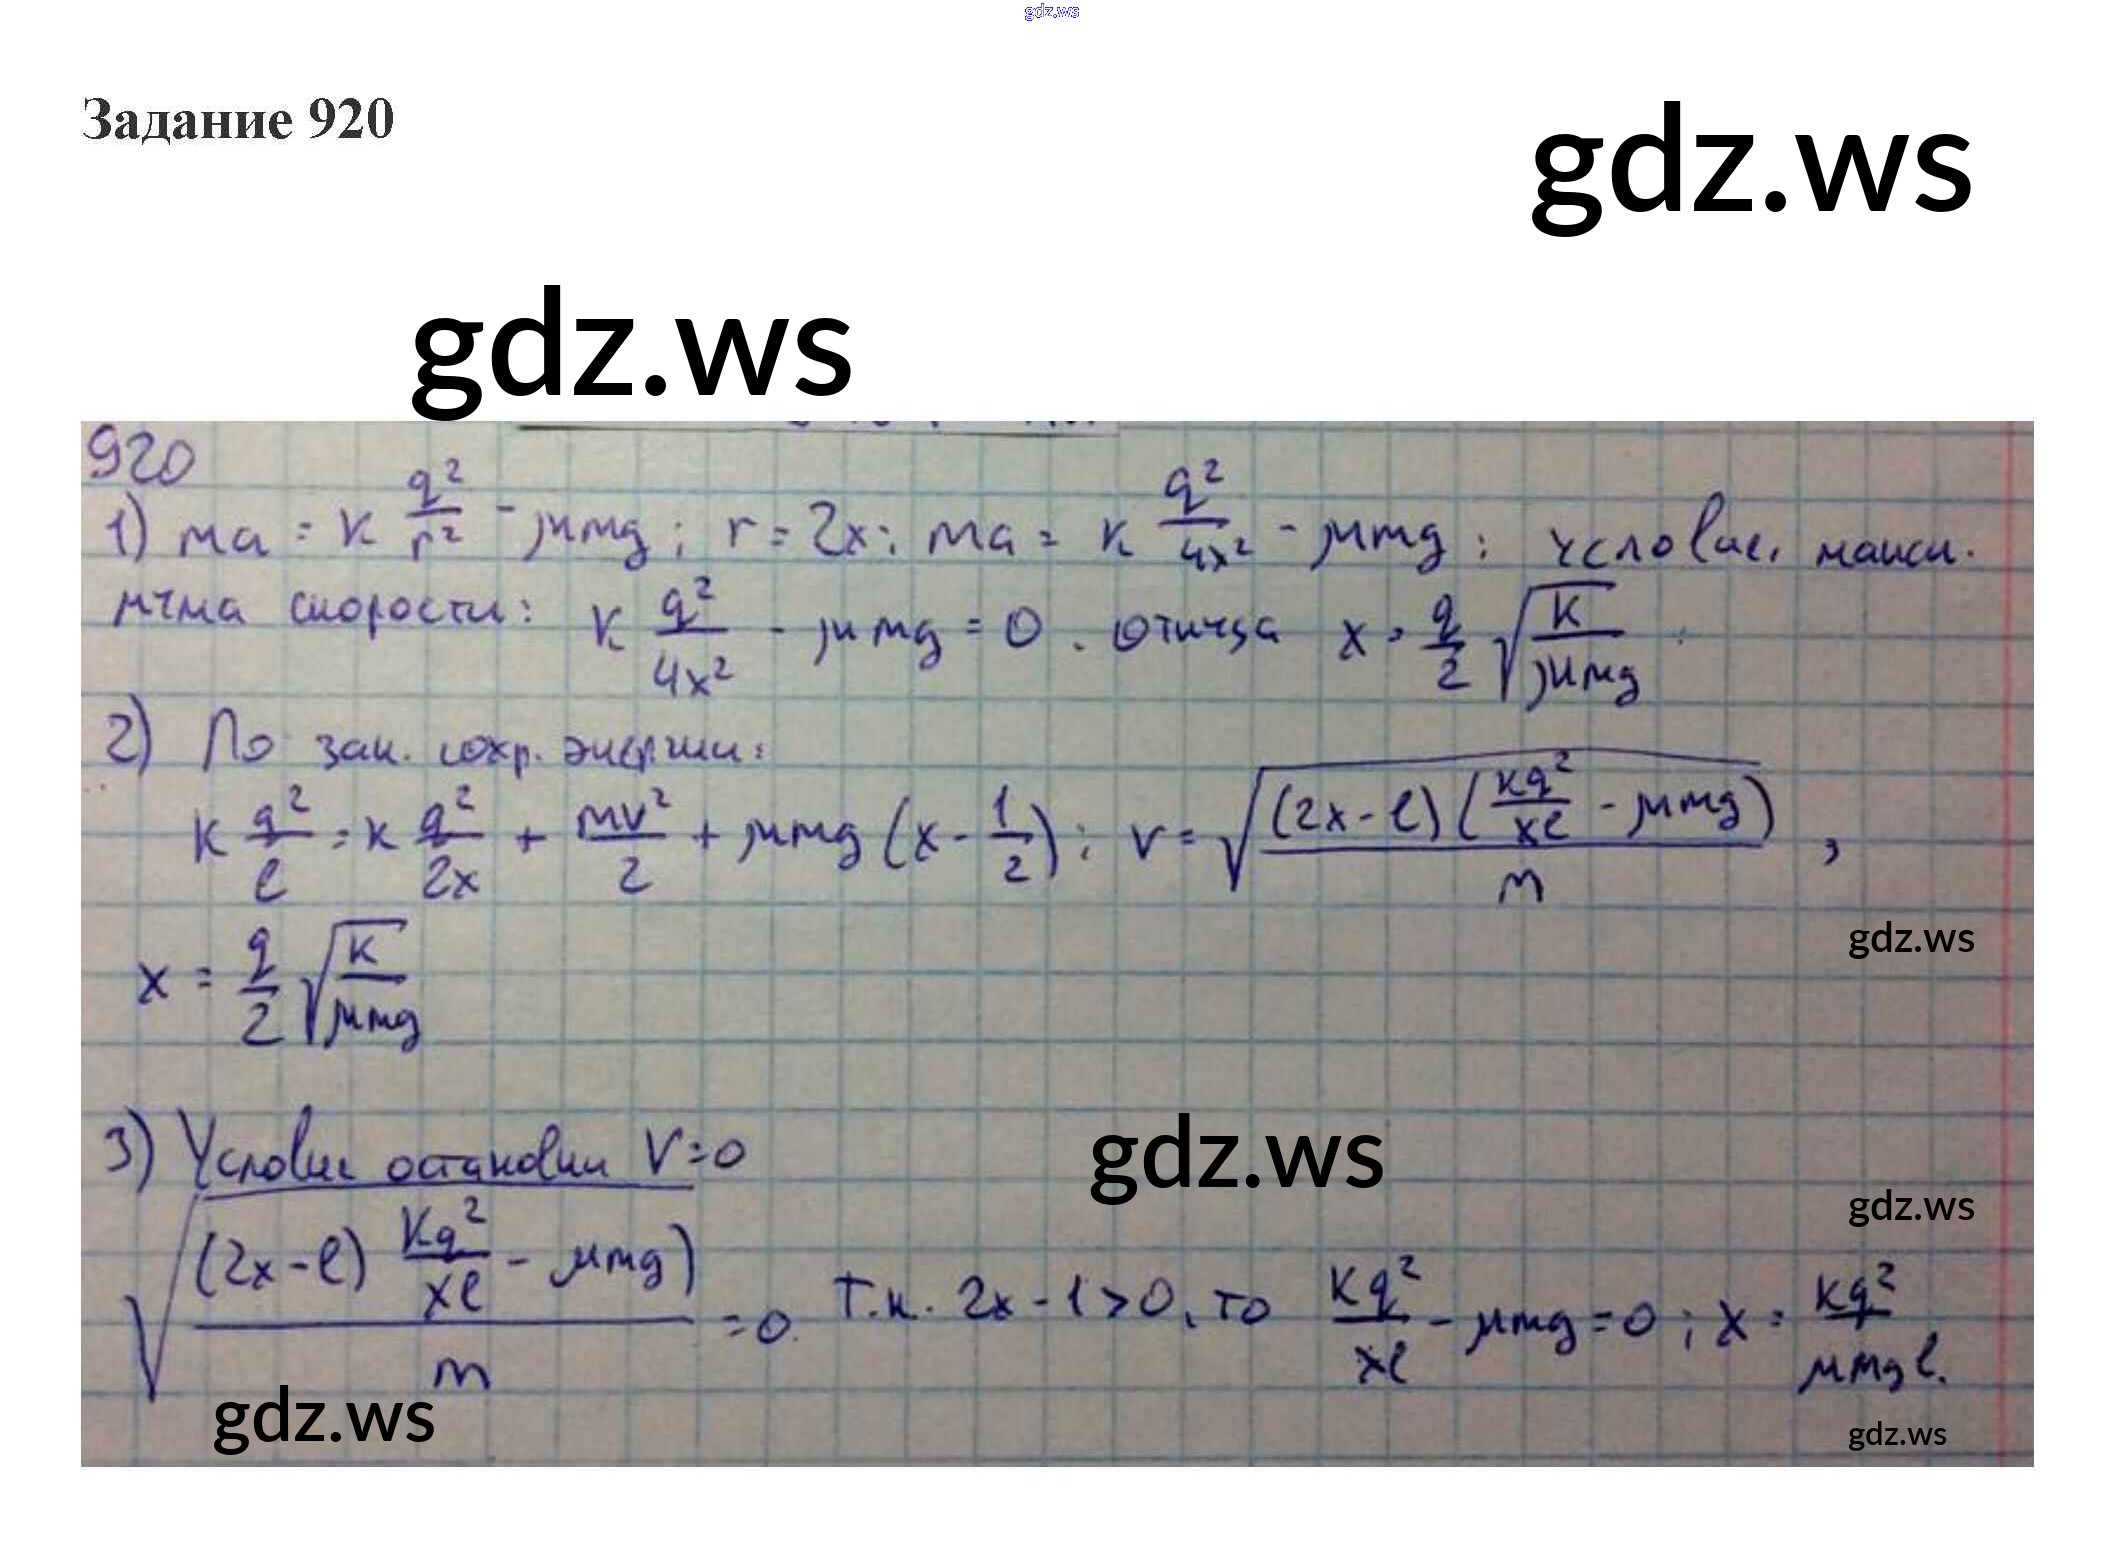 gdz.ws
Задание 920
gdz.ws
gdz.ws
920
1) ma = k q²/r² - μmg; r = 2x; ma = k q²/4x² - μmg; условие макси-
мума скорости: k q²/4x² - μmg = 0. отсюда x = q/2 √(k/μmg)
2) По зак. сохр. энергии:
k q²/l = k q²/2x + mv²/2 + μmg (x - 1/2); v = √((2x-l)(kq²/xl - μmg)/m),
gdz.ws
x = q/2 √(k/μmg)
3) Условие остановки V=0
gdz.ws
gdz.ws
√((2x-l) kq²/xl - μmg)/m) = 0. Т.к. 2x-1>0, то kq²/xl - μmg = 0; x = kq²/μmgl.
gdz.ws
gdz.ws